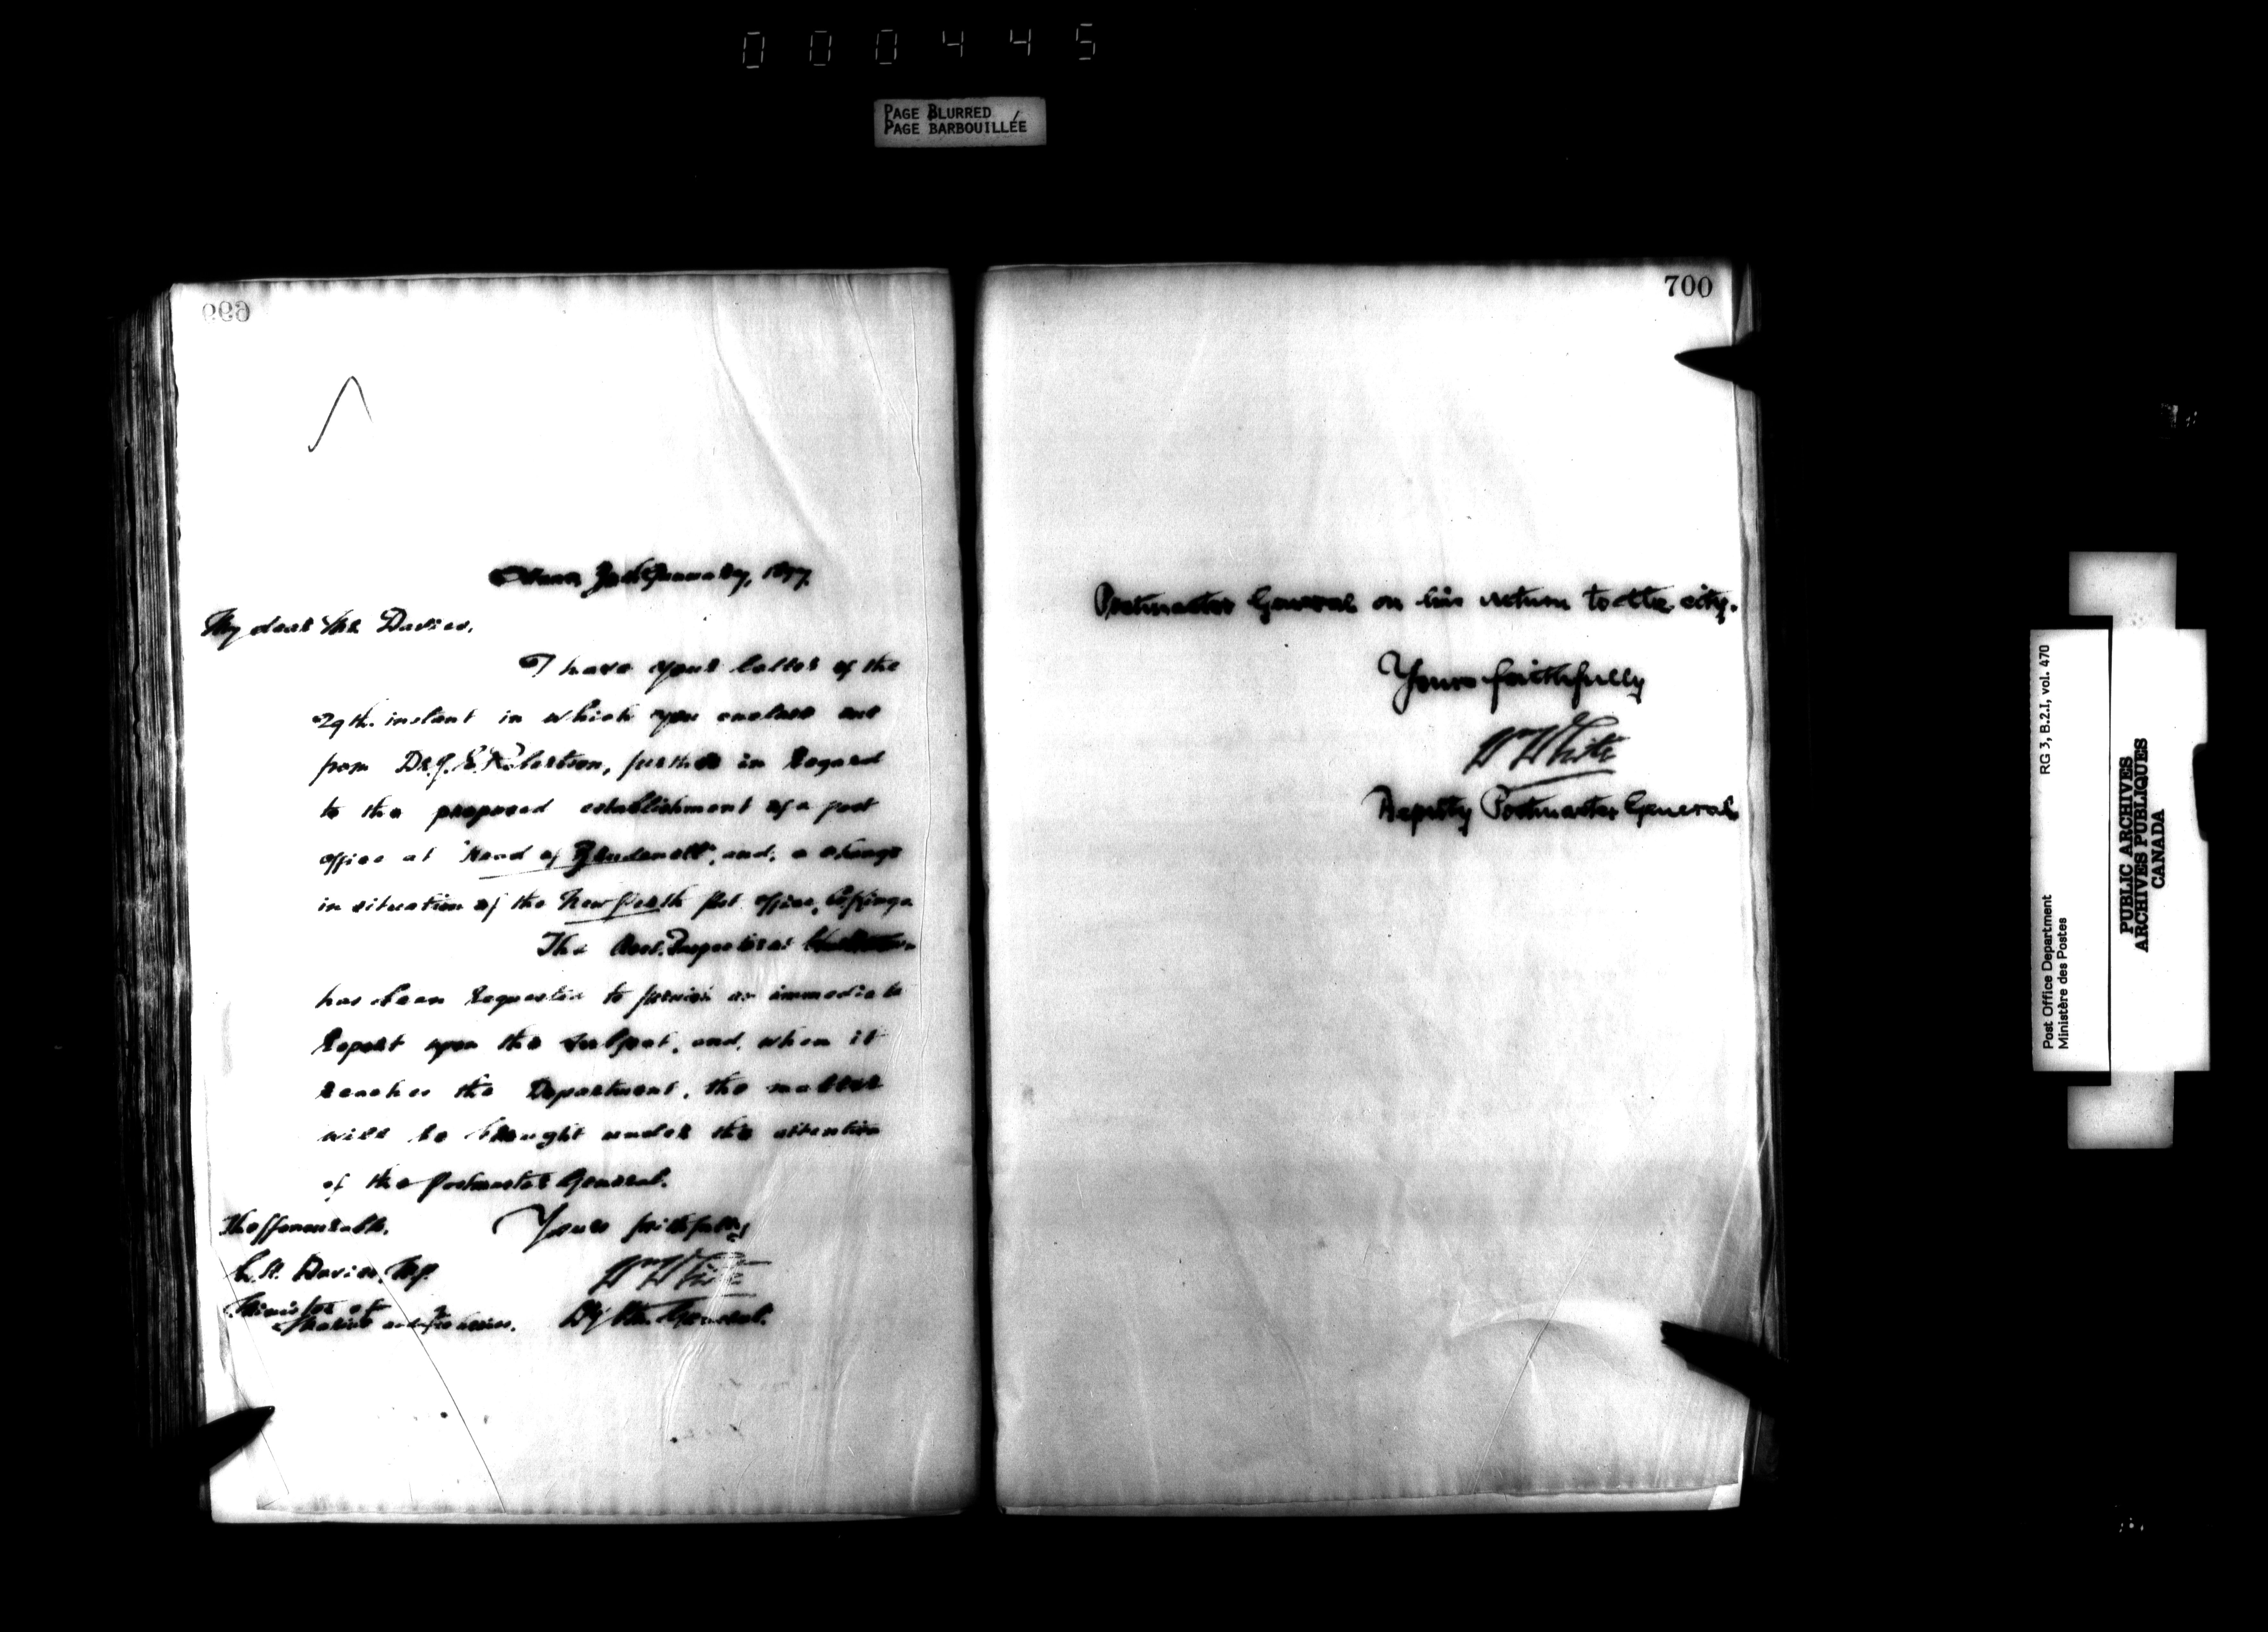 000445
PAGE BLURRED
PAGE BARBOUILLÉE
699
Ottawa, January, 1897.
My dear Mr. Davies,
I have your letter of the
29th. instant in which you enclose one
from Dr. J. E. Robertson, further in regard
to the proposed establishment of a post
office at "Head of Brudenell", and, a change
in situation of the New Perth post office, Co. Kings.
The Asst. Inspector at
has been requested to furnish an immediate
report upon the subject, and, when it
reaches the Department, the matter
will be brought under the attention
of the Postmaster General.
The Honourable, Yours faithfully
L. H. Davies, M.P. W White
Minister of Dy P.M. General.
Marine and Fisheries.
700
Postmaster General on his return to the city.
Yours faithfully
W White
Deputy Postmaster General
Post Office Department RG 3, B.2.I, vol. 470
Ministère des Postes
PUBLIC ARCHIVES
ARCHIVES PUBLIQUES
CANADA